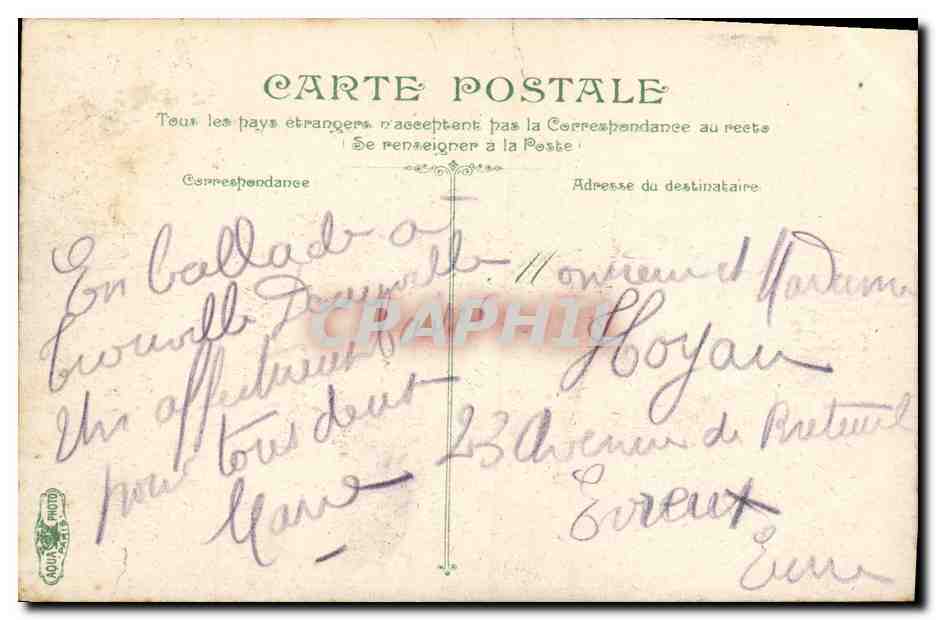 CARTE POSTALE
Tous les pays étrangers n'acceptent pas la Correspondance au recto
(Se renseigner à la Poste)
Correspondance
Adresse du destinataire
En ballade à
trouville Deauville
Un affectueux
pour tous deux
Marie
Monsieur et Madame
Hoyau
23 Avenue de Breteuil
Evreux
Eure
CPAPHIL
AQUA PHOTO
PARIS